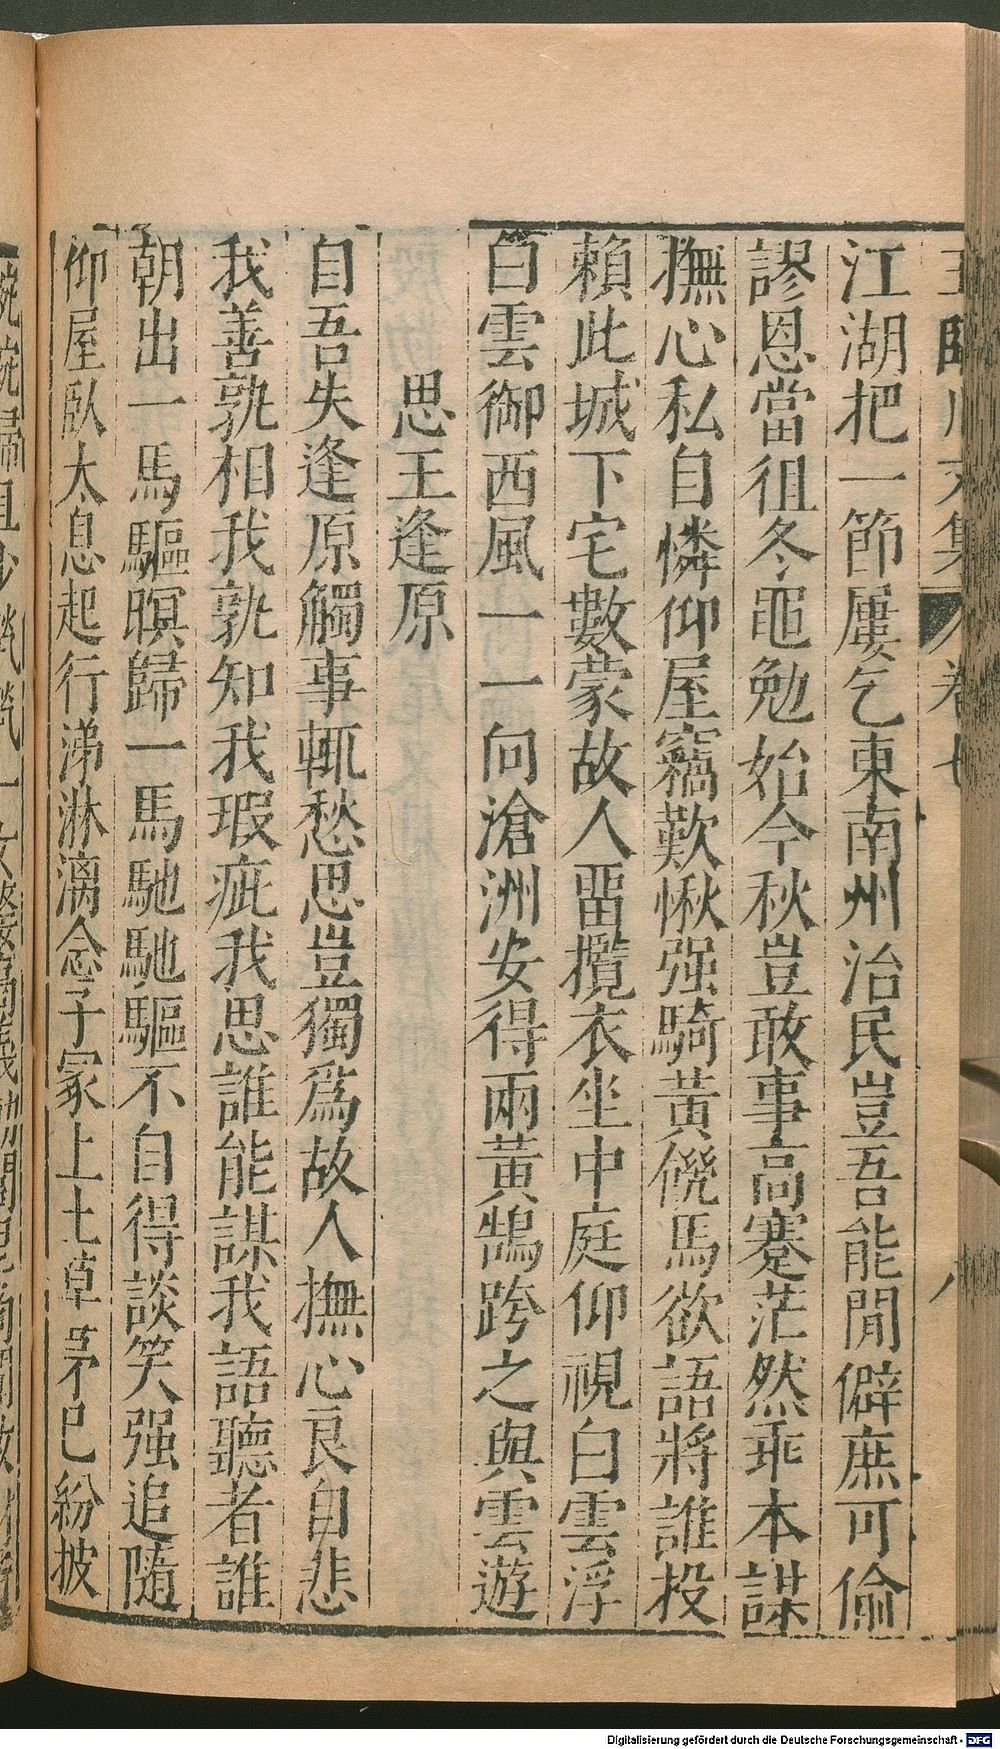 王臨川文集 卷七 八
江湖把一節屢乞東南州治民豈吾能閒僻庶可偷
謬恩當徂冬黽勉始今秋豈敢事高蹇茫然乖本謀
撫心私自憐仰屋竊歎愀强騎黃僥馬欲語將誰投
賴此城下宅數蒙故人畱攬衣坐中庭仰視白雲浮
白雲御西風一一向滄洲安得兩黃鵠跨之與雲遊
思王逢原
自吾失逢原觸事輒愁思豈獨爲故人撫心良自悲
我善孰相我孰知我瑕疵我思誰能謀我語聽者誰
朝出一馬驅暝歸一馬馳馳驅不自得談笑强追隨
仰屋臥太息起行涕淋漓念子冢上土草茅已紛披
Digitalisierung gefördert durch die Deutsche Forschungsgemeinschaft - DFG